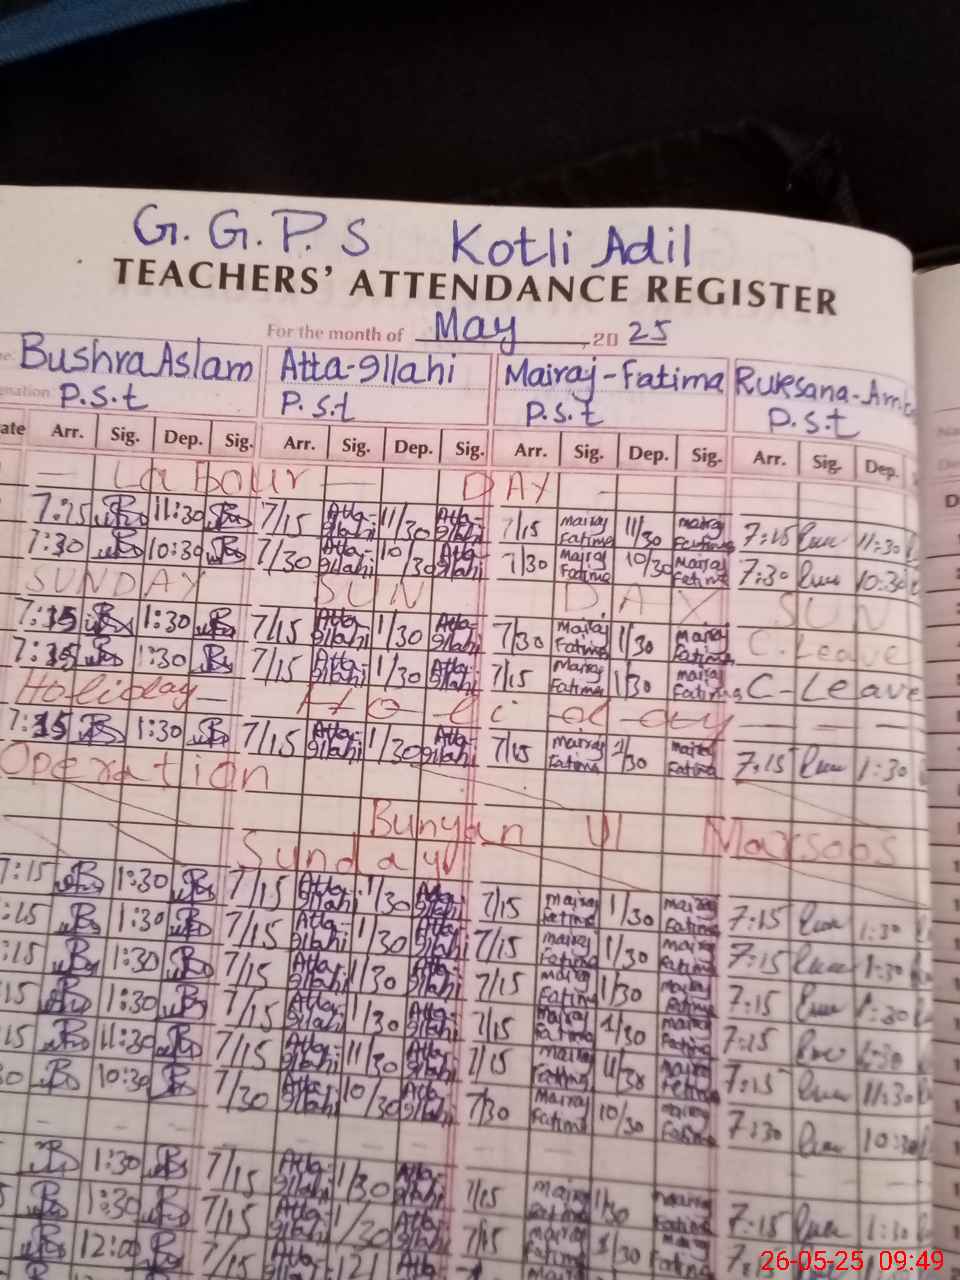 G. G. P. S Kotli Adil
TEACHERS' ATTENDANCE REGISTER
For the month of May, 20 25
Bushra Aslam Atta-9llahi Mairaj-Fatima Ruksana-
P.s.t P.s.t P.s.t P.s.t
ate Arr. Sig. Dep. Sig. Arr. Sig. Dep. Sig. Arr. Sig. Dep. Sig. Arr. Sig. Dep.
Labour DAY
7:15 11:30 7/15 Atta-9llahi 11/30 Atta-9llahi 7/15 Mairaj Fatima 11/30 Mairaj Fatima 7:15 11:30
7:30 10:30 7/30 Atta-9llahi 10/30 Atta-9llahi 7/30 Mairaj Fatima 10/30 Mairaj Fatima 7:30 10:30
SUNDAY SUN DAY SUN
1:30 7/15 Atta-9llahi 1/30 Atta-9llahi 7/30 Mairaj Fatima 1/30 Mairaj Fatima C.Leave
1:30 7/15 Atta-9llahi 1/30 Atta-9llahi 7/15 Mairaj Fatima 1/30 Mairaj Fatima C-Leave
Holiday Ho li d ay
1:30 7/15 Atta-9llahi 1/30 Atta-9llahi 7/15 Mairaj Fatima 1/30 Mairaj Fatima 7:15 1:30
Operation
Bunyan Ul Marsoos
Sunday
7:15 1:30 7/15 Atta-9llahi 1/30 Atta-9llahi 7/15 Mairaj Fatima 1/30 Mairaj Fatima 7:15 1:30
:15 1:30 7/15 Atta-9llahi 1/30 Atta-9llahi 7/15 Mairaj Fatima 1/30 Mairaj Fatima 7:15 1:30
:15 1:30 7/15 Atta-9llahi 1/30 Atta-9llahi 7/15 Mairaj Fatima 1/30 Mairaj Fatima 7:15 1:30
15 1:30 7/15 Atta-9llahi 1/30 Atta-9llahi 7/15 Mairaj Fatima 1/30 Mairaj Fatima 7:15 1:30
15 11:30 7/15 Atta-9llahi 11/30 Atta-9llahi 7/15 Mairaj Fatima 11/30 Mairaj Fatima 7:15 11:30
30 10:30 7/30 Atta-9llahi 10/30 Atta-9llahi 7/30 Mairaj Fatima 10/30 Mairaj Fatima 7:30 10:30
1:30 7/15 Atta-9llahi 1/30 Atta-9llahi 7/15 Mairaj Fatima 1/30 Mairaj Fatima 7:15 1:30
1:30 7/15 Atta-9llahi 1/30 Atta-9llahi 7/15 Mairaj Fatima 1/30 Mairaj Fatima
12:00 7/15 Atta-
26-05-25 09:49